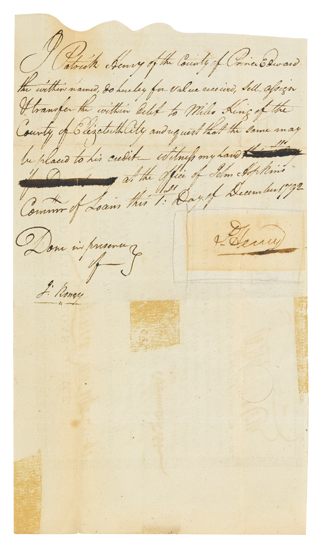 I Patrick Henry of the County of Prince Edward
the within named, do hereby for value received, sell assign
& transfer the within debt to Miles King of the
County of Elizabeth City and request that the same may
be placed to his credit Witness my hand
at the office of John Hopkins
Commr. of Loans this 1st. Day of December 1792
Done in presence
of
P. Henry